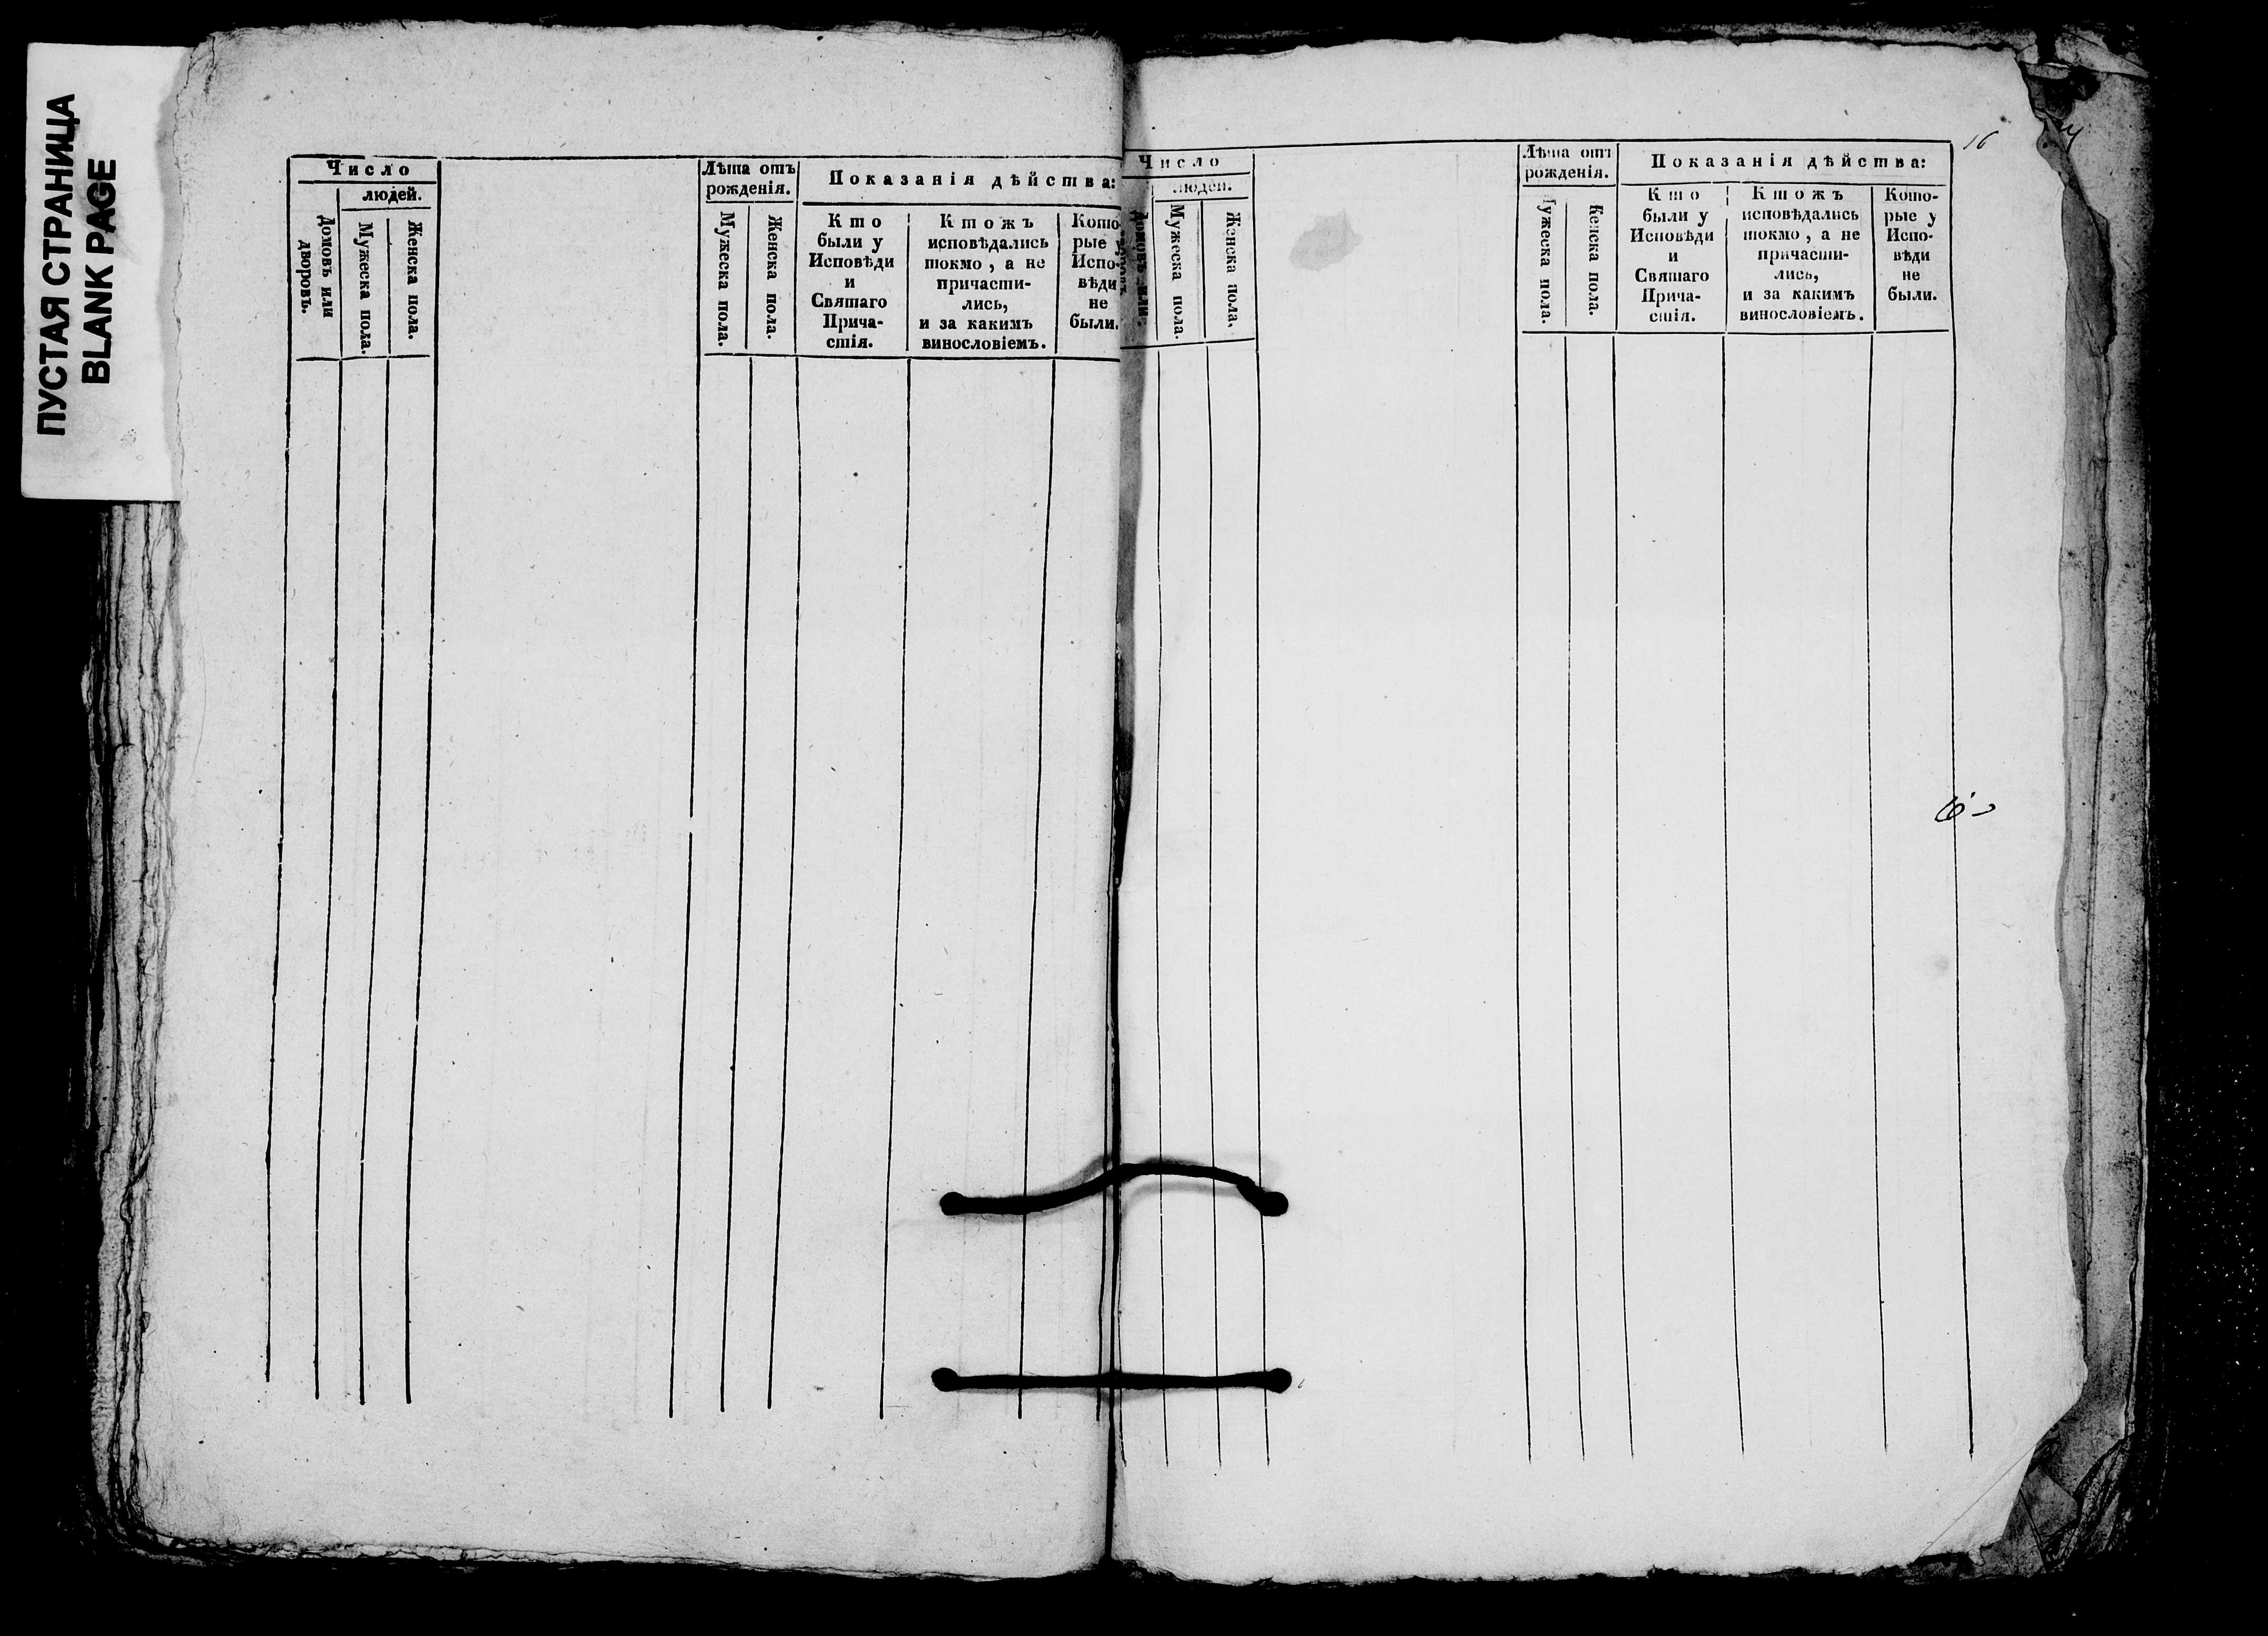 ПУСТАЯ СТРАНИЦА
BLANK PAGE
Число
людей.
Домовъ или
дворовъ.
Мужеска пола.
Женска пола.
Лѣта отъ
рожденія.
Мужеска пола.
Женска пола.
Показанія дѣйства:
Кто
были у
Исповѣди
и
Святаго
Прича-
стія.
Ктожъ
исповѣдались
токмо, а не
причасти-
лись,
и за какимъ
винословіемъ.
Кото-
рые
Испо-
вѣди
не
были.
16
Число
людей.
Домовъ или
Мужеска пола
Женска пола.
Лѣта отъ
рожденія.
Мужеска пола.
Женска пола.
Показанія дѣйства:
Кто
были у
Исповѣди
и
Святаго
Прича-
стія.
Ктожъ
исповѣдались
токмо, а не
причасти-
лись,
и за какимъ
винословіемъ.
Кото-
рые у
Испо-
вѣди
не
были.